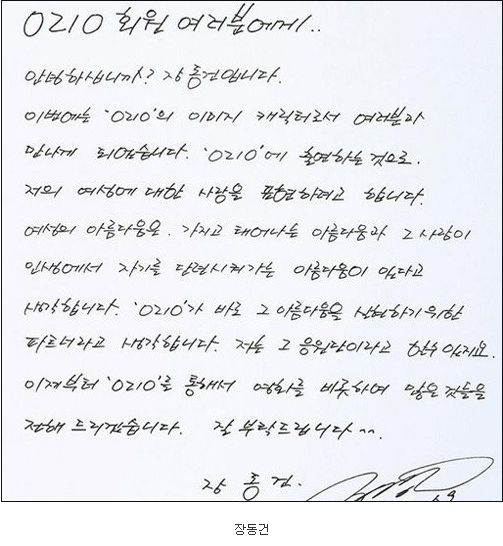 OZIO 회원 여러분에게..
안녕하십니까? 장동건입니다.
이번에는 'OZIO'의 이미지 캐릭터로서 여러분과
만나게 되었습니다. 'OZIO'에 출연하는 것으로.
저의 여성에 대한 사랑을 표현하려고 합니다.
여성의 아름다움은. 가지고 태어나는 아름다움과 그 사람이
인생에서 자기를 단련시켜가는 아름다움이 있다고
생각합니다. 'OZIO'가 바로 그 아름다움을 실현하기 위한
파트너라고 생각합니다. 저는 그 응원단이라고 할수 있지요.
이제부터 'OZIO'를 통해서 영화를 비롯하여 많은 것들을
전해 드리겠습니다. 잘 부탁드립니다^^.
장 동 건.
장동건